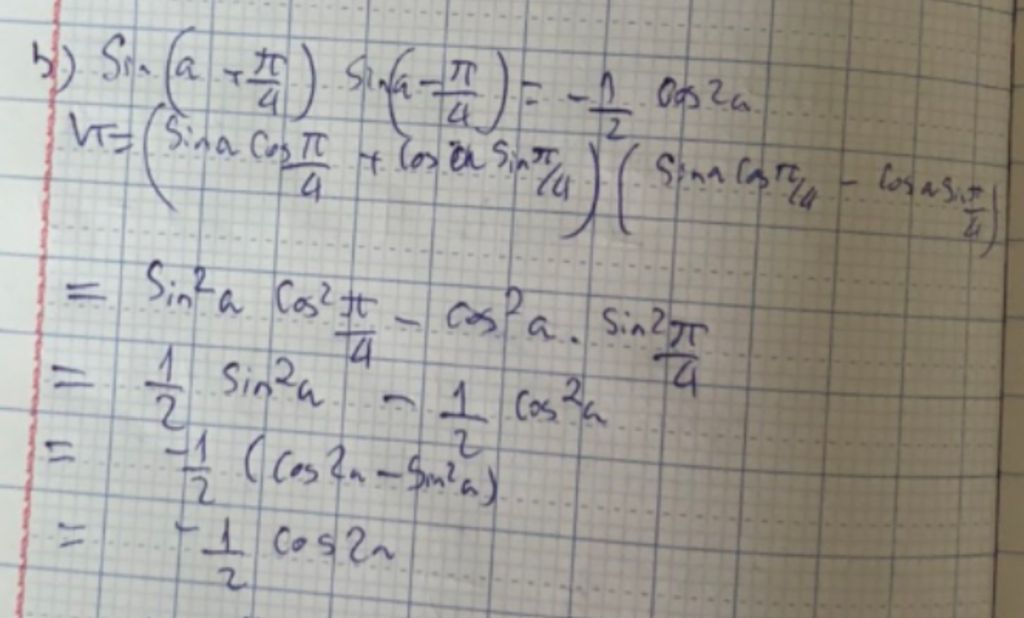 b) Sin(a + π/4) Sin(a - π/4) = -1/2 Cos2a
VT = (Sina Cos π/4 + Cosa Sin π/4)(Sina Cos π/4 - Cosa Sin π/4)
= Sin²a Cos² π/4 - cos²a . Sin² π/4
= 1/2 Sin²a - 1/2 cos²a
= -1/2 (Cos2a - Sin²a)
= -1/2 Cos2a